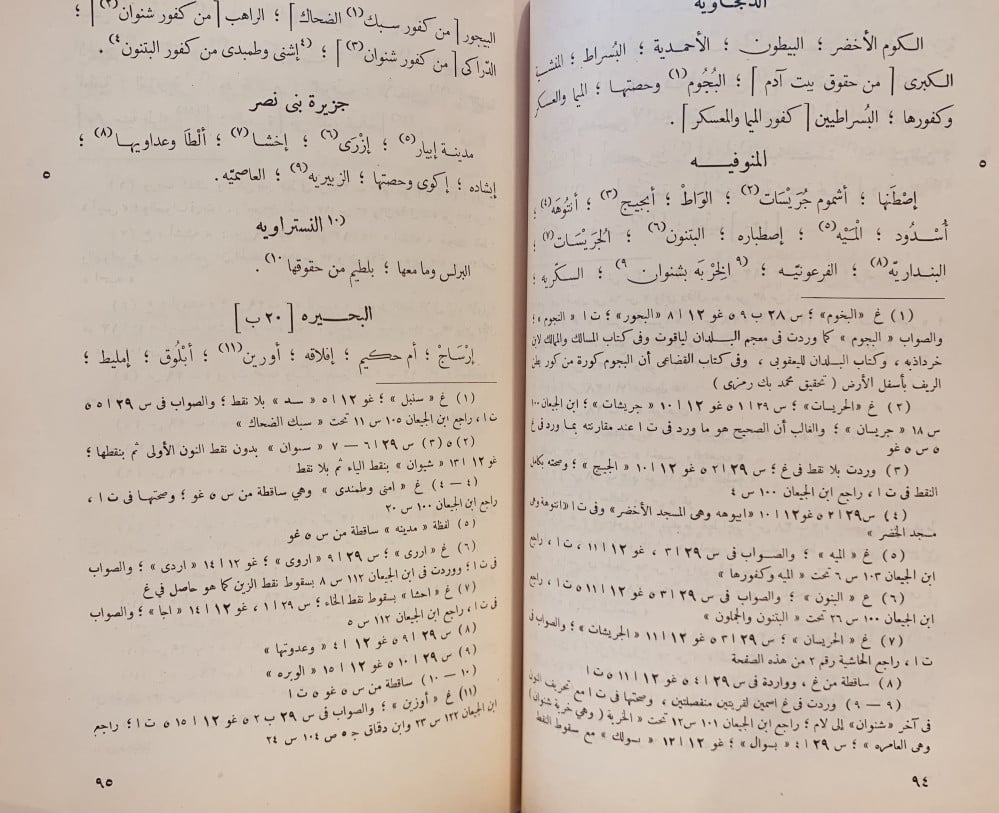 الدنجاويه
الكوم الأخضر ؛ البيطون ؛ الأحمدية ؛ البُسراط ؛
الكبرى [ من حقوق بيت آدم ] ؛ البُجُوم (١) وحصتها ؛ الميا والعسكر
وكفورها ؛ البُسراطيين [ كفور الميا والمعسكر ] .
المنوفيـــه
إصْطَنها ؛ أشموم جُرَيْسَات (٢) ؛ الوَاطْ ؛ أبجيج (٣) ؛ أنتُوهَه (٤) ؛
أُسْدُود ؛ المَيْه (٥) ؛ إصطباره ؛ البتنون (٦) ؛ الجُرَيْسَات (٧) ؛
البنداريّه (٨) ؛ الفرعونيّه ؛ (٩ الخِرْبَه بشنوان ٩) ؛ السكّريه ؛
(١) غ « البخوم » ؛ س ٢٨ ب ٩ ٥ غو ١٢ ا ٨ « البحور » ؛ ت ا « النجوم » ؛
والصواب « البجوم » كما وردت فى معجم البلدان لياقوت وفى كتاب المسالك والممالك لابن
خرداذبه ، وكتاب البلدان لليعقوبى ، وفى كتاب القضاعى أن البجوم كورة من كور بطن
الريف بأسفل الأرض ( تحقيق محمد بك رمزى )
(٢) غ « الحريسات » ؛ س ٢٩ ا ١ ٥ غو ١٢ ا ١٠ « جريشات » ؛ ابن الجيعان ١٠٠
س ١٨ « جريسان » ؛ والغالب أن الصحيح هو ما ورد فى ت ا عند مقارنته بما ورد فى غ
٥ س ٥ غو
(٣) وردت بلا نقط فى غ ؛ س ٢٩ ا ٢ ٥ غو ١٢ ا ١٠ « الجبج » ؛ وصحته بكامل
النقط فى ت ا ، راجع ابن الجيعان ١٠٠ س ٤
(٤) س ٢٩ ا ٢ ٥ غو ١٢ ا ١٠ « ابيوهه وهى المسجد الأخضر » وفى ت ا « انتوهة وهى
مسجد الخضر »
(٥) غ « الميه » ؛ والصواب فى س ٢٩ ا ٣ ، غو ١٢ ا ١١ ، ت ا ، راجع
ابن الجيعان ١٠٣ س ٦ تحت « الميه وكفورها »
(٦) ع « البنون » ؛ والصواب فى س ٢٩ ا ٣ ٥ غو ١٢ ا ١١ ٥ ت ا ، راجع
ابن الجيعان ١٠٠ س ٢٦ تحت « البتنون والجلون »
(٧) غ « الحريسان » ؛ س ٢٩ ا ٣ ٥ غو ١٢ ا ١١ « الجريشات » ؛ والصواب فى
ت ا ، راجع الحاشية رقم ٢ من هذه الصفحة
(٨) ساقطة من غ ، وواردة فى س ٢٩ ا ٤ ٥ غو ١٢ ا ١١ ٥ ت ا
(٩ – ٩) وردت فى غ اسمين لقريتين منفصلتين ، وصحتها فى ت ا مع تحريف النون
فى آخر « شنوان » إلى لام ؛ راجع ابن الجيعان ١٠١ س ١٢ تحت « الخربة ( وهى خربة شنوان )
وهى العامره » ؛ س ٢٩ ا ٤ « بسوال » ؛ غو ١٢ ا ١٣ « بسولك » مع سقوط النقط
٩٤
البيجور [ من كفور سبك (١) الضحاك ] ؛ الراهب [ من كفور شنوان (٢) ] ؛
الدّراكى [ من كفور شنوان (٣) ] ؛ (٤ إشنى وطمبدى من كفور البتنون ٤) .
جزيرة بنى نصر
مدينة إبيار (٥) ؛ إزْرَى (٦) ؛ إخشا (٧) ؛ ألْطَا وعداويها (٨) ؛
إبشاده ؛ إكوى وحصتها ؛ الزبيريه (٩) ؛ العاصميّه .
(١٠ النستراويه
البرلس وما معها ؛ بلطيم من حقوقها ١٠) .
البحيره [ ٢٠ ب ]
إرْسَاجْ ؛ أم حكيم ؛ إفلاقه ؛ أورين (١١) ؛ أبْلُوق ؛ إمليط ؛
(١) غ « سنبل » ؛ غو ١٢ ا ٥ « سد » بلا نقط ؛ والصواب فى س ٢٩ ا ٥ ٥
ت ا ، راجع ابن الجيعان ١٠٥ س ١١ تحت « سبك الضحاك »
(٢) ٥ (٣) س ٢٩ ا ٦ – ٧ « سسوان » بدون نقط النون الأولى ثم بنقطها ؛
غو ١٢ ا ١٣ « شيوان » بنقط الياء ثم بلا نقط
(٤ – ٤) غ « امنى وطمندى » وهي ساقطة من س ٥ غو ؛ وصحتها فى ت ا ،
راجع ابن الجيعان ١٠٠ س ٢٠
(٥) لفظة « مدينه » ساقطة من س ٥ غو
(٦) غ « اررى » ؛ س ٢٩ ا ٩ « اروى » ؛ غو ١٢ ا ١٤ « اردى » ؛ والصواب
فى ت ا ؛ ووردت فى ابن الجيعان ١١٢ س ٨ بسقوط نقط الزين كما هو حاصل فى غ
(٧) غ « احشا » بسقوط نقط الخاء ؛ س ٢٩ ا ١ ، غو ١٢ ا ١٤ « اجا » ؛ والصواب
فى ت ا ، راجع ابن الجيعان ١١٢ س ٥
(٨) س ٢٩ ا ٩ ٥ غو ١٢ ا ٤ « وعدوتها »
(٩) س ٢٩ ا ١٠ ٥ غو ١٢ ا ١٥ « الوبره »
(١٠ – ١٠) ساقطة من س ٥ غو ٥ ت ا
(١١) غ « أوزين » ؛ والصواب فى س ٢٩ ب ٢ ٥ غو ١٢ ا ١٥ ٥ ت ا ؛ راجع
ابن الجيعان ١٢٢ س ٢٣ وابن دقاق ج ٥ ص ١٠٤ س ٢٤
٩٥
٥
٥